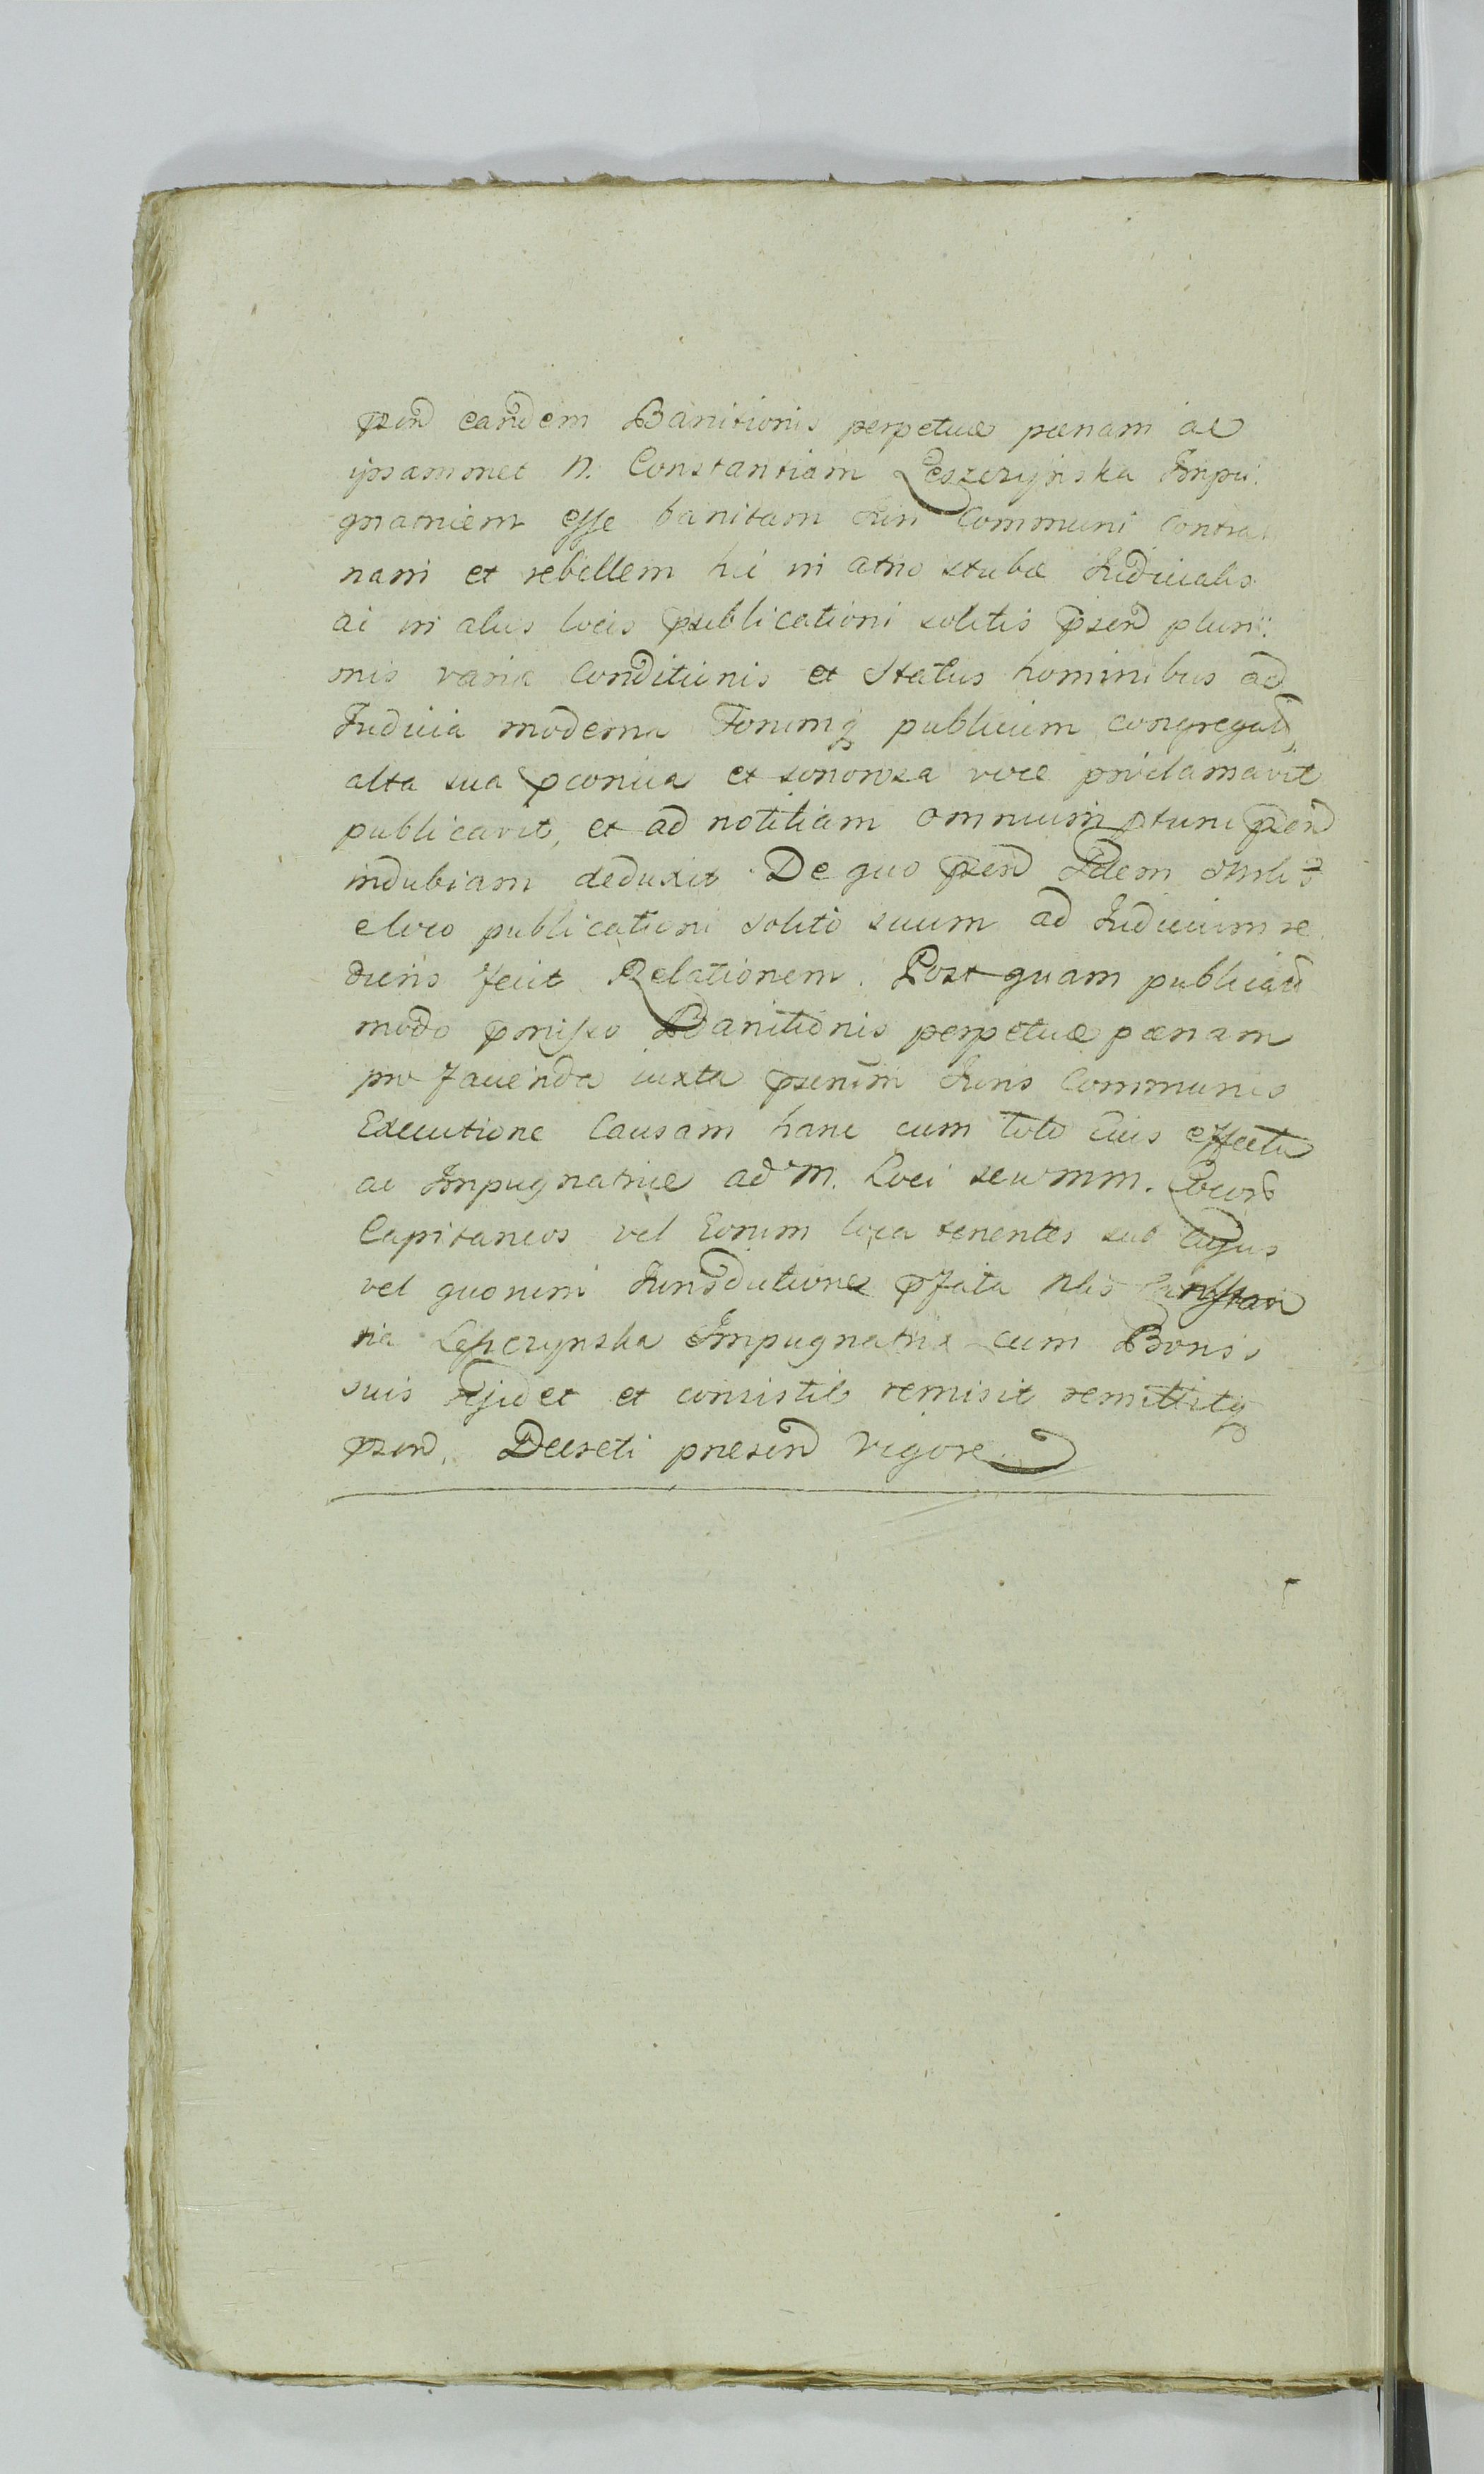 pnd eandem Banitionis perpetuæ pœnam ac
ipsammet N. Constantiam Leszczynska Impu:
gnatricem esse banitam Iuri Communi contra
riam et rebellem hic in atrio stubæ Iudicialis
ac in aliis locis publicationi solitis pnd pluri:
mis variæ Conditionis et Status hominibus ad
Iudicia moderna Forumq publicum congregatis,
alta sua pconica et sonorosa voce proclamavit
publicavit, et ad notitiam omnium ptunc pnd
indubiam deduxit. De quo pnd Idem Mnlis
eloco publicationi solito suum ad Iudicium re
diens fecit Relationem. Post quam publicam
modo pmisso Banitionis perpetuæ pœnam
pro facienda iuxta pnum Iuris Communis
Executione Causam hanc cum toto eius effectu
ac Impugnatrice ad M. Loci seu MM. Locorũ
Capitaneos vel Eorum loca tenentes sub cujus
vel quorum Iurisdictione pfata Nlis Constan
tia Leszczynska Impugnatrix cum Bonis
suis residet et consistit remisit remittitq
pnd. Decreti præsend vigore